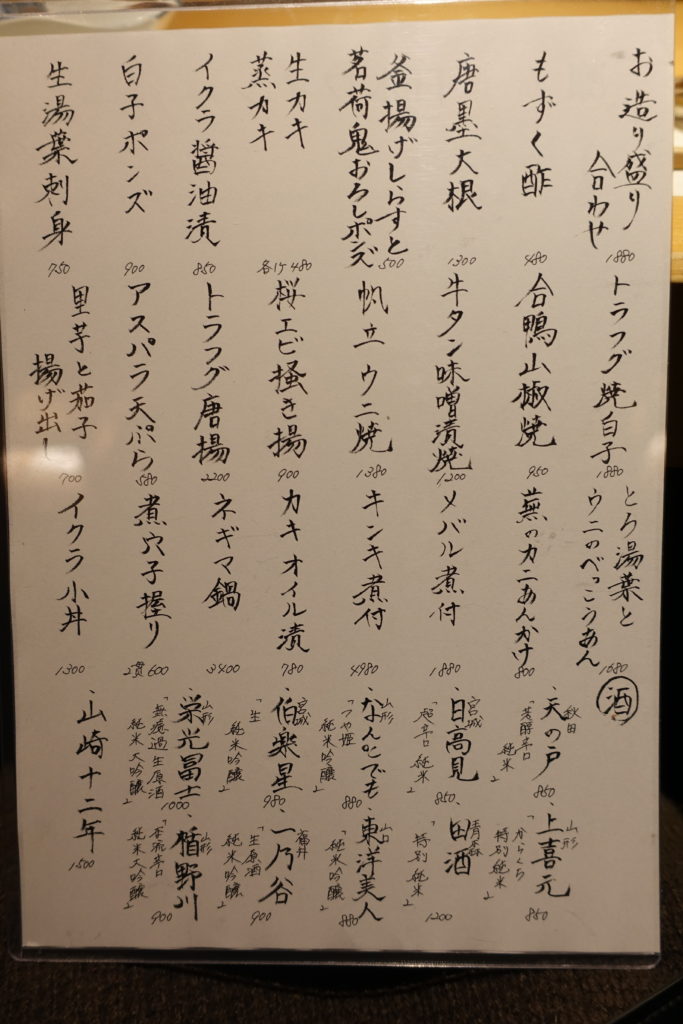 お造り盛り
合わせ
1880
もずく酢
480
唐墨大根
1300
釜揚げしらすと
茗荷鬼おろしポンズ
500
生カキ
蒸カキ
各1ケ 480
イクラ醤油漬
850
白子ポンズ
900
生湯葉刺身
750
トラフグ焼白子
1880
合鴨山椒焼
950
牛タン味噌漬焼
1200
帆立ウニ焼
1380
桜エビ掻き揚
900
トラフグ唐揚
2200
アスパラ天ぷら
580
里芋と茄子
揚げ出し
700
とろ湯葉と
ウニのべっこうあん
1680
蕪のカニあんかけ
800
メバル煮付
1880
キンキ煮付
4980
カキオイル漬
780
ネギマ鍋
3400
煮穴子握り
2貫 600
イクラ小丼
1300
酒
秋田
・天の戸
「芳醇辛口
純米」
850
山形
・上喜元
「からくち
特別純米」
850
宮城
・日高見
「超辛口 純米」
850
青森
・田酒
「特別純米」
1200
山形
・なんどでも
「つや姫
純米吟醸」
880
山口
・東洋美人
「純米吟醸」
880
宮城
・伯楽星
「生
純米吟醸」
980
福井
・一乃谷
「生原酒
純米吟醸」
900
山形
・栄光冨士
「無濾過生原酒
純米大吟醸」
1000
山形
・楯野川
「本流辛口
純米大吟醸」
900
・山崎十二年
1500